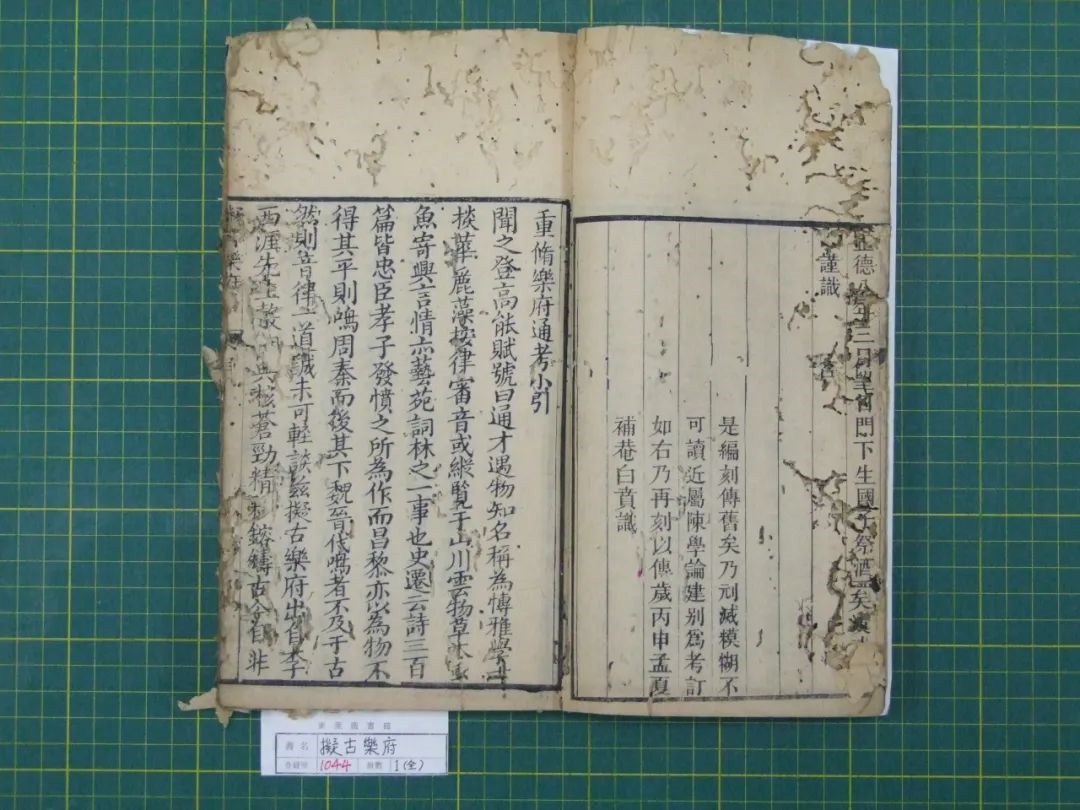 正德三門下生國祭酒
謹識
是編刻傳舊矣乃刓滅模糊不
可讀近屬陳學論建别爲考訂
如右乃再刻以傳歲丙申孟夏
補菴白賁識
重脩樂府通考小引
聞之登高能賦號曰通才遇物知名稱為博雅學士
掞華麗藻按律審音或縱覽于山川雲物草木
魚寄興言情亦藝苑詞林之一事也史遷云詩三百
篇皆忠臣孝子發憤之所為作而昌黎亦以為物不
得其平則鳴周秦而後其下魏晉代鳴者不及于古
然則音律一道誠未可輕談茲擬古樂府出自李
西涯先生蒼勁精鎔鑄古今自非
樂府
東菴圖書館
書名 擬古樂府
登錄 1044 冊數 1(全)